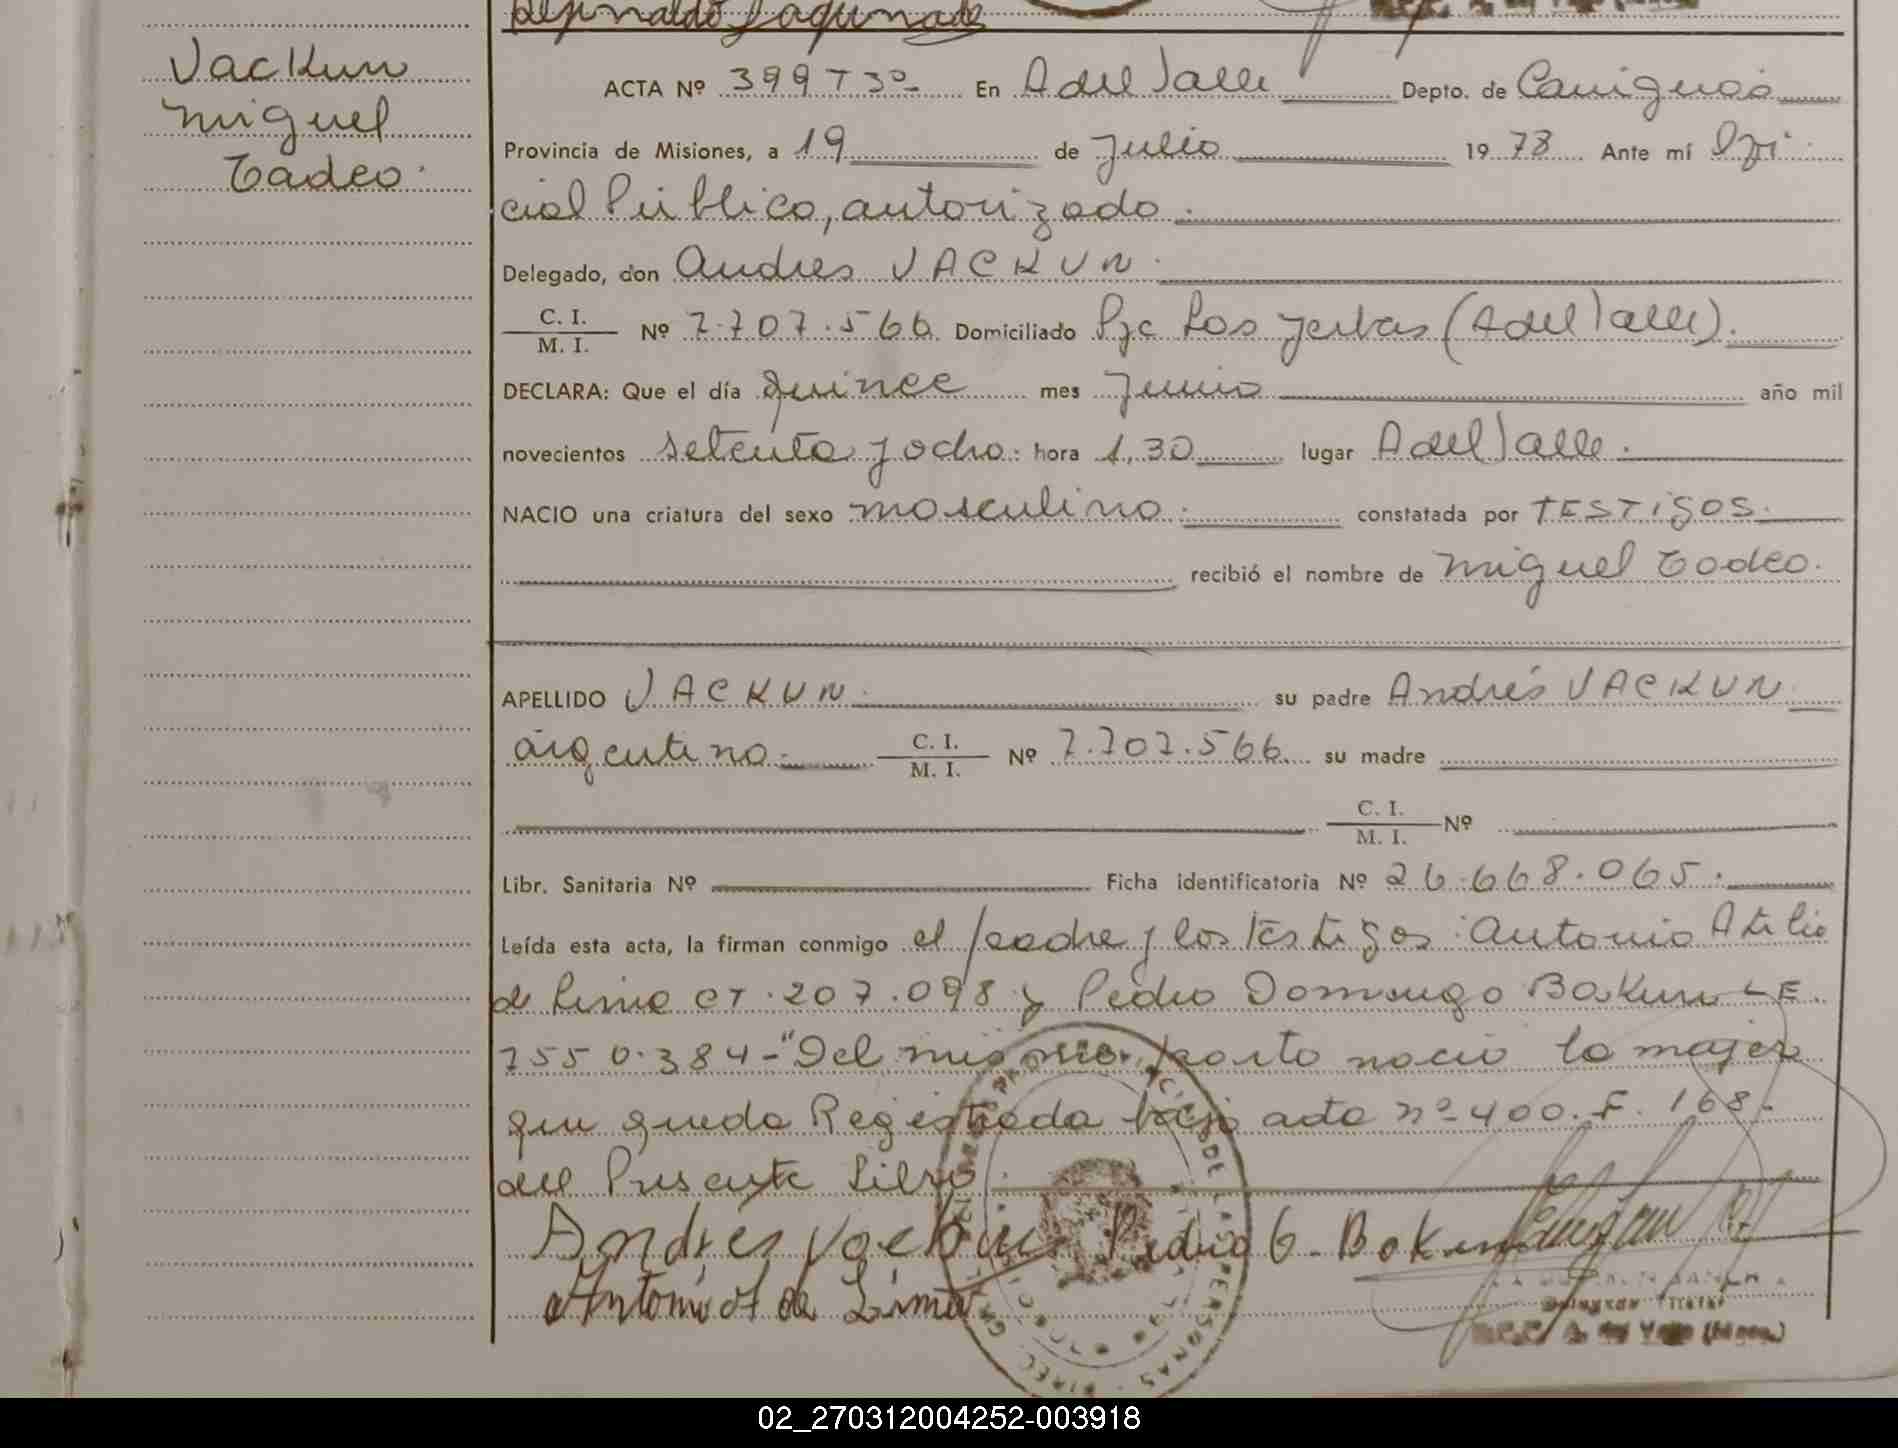 Vackun
Miguel
Tadeo.
ACTA Nº 399 T3º En A del Valle Depto. de Cainguás
Provincia de Misiones, a 19 de Julio 19 78 Ante mí Ofi
cial Público, autorizado.
Delegado, don Andres VACKUN.
C. I.
M. I.
Nº 7.707.566 Domiciliado Pje Las Yerbas (A del Valle).
DECLARA: Que el día quince mes Junio año mil
novecientos setenta y ocho: hora 1,30 lugar A del Valle.
NACIO una criatura del sexo masculino. constatada por TESTigos.
recibió el nombre de Miguel Tadeo.
APELLIDO VACKUN. su padre Andrés VACKUN.
argentino. C. I.
M. I.
Nº 7.707.566. su madre
C. I.
M. I.
Nº
Libr. Sanitaria Nº Ficha identificatoria Nº 26.668.065.
Leída esta acta, la firman conmigo el padre y los testigos: Antonio Atilio
de Lima CI. 207.098 y Pedro Domingo Bakun LE.
7550.384-"Del mismo parto nació la mujer
que queda Registrada bajo acta nº 400. F. 168.
del Presente Libro.
Andrés Vackun Pedro G. Bokun
Antonio A de Lima
DE LAS PERSONAS
02_270312004252-003918